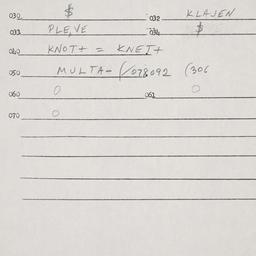 030 $ 032 KLAJEN
033 PLE,VE 034 $
040 KNOT+ = KNEI+
050 MULTA- (/078092 (306
060 0 061 0
070 0